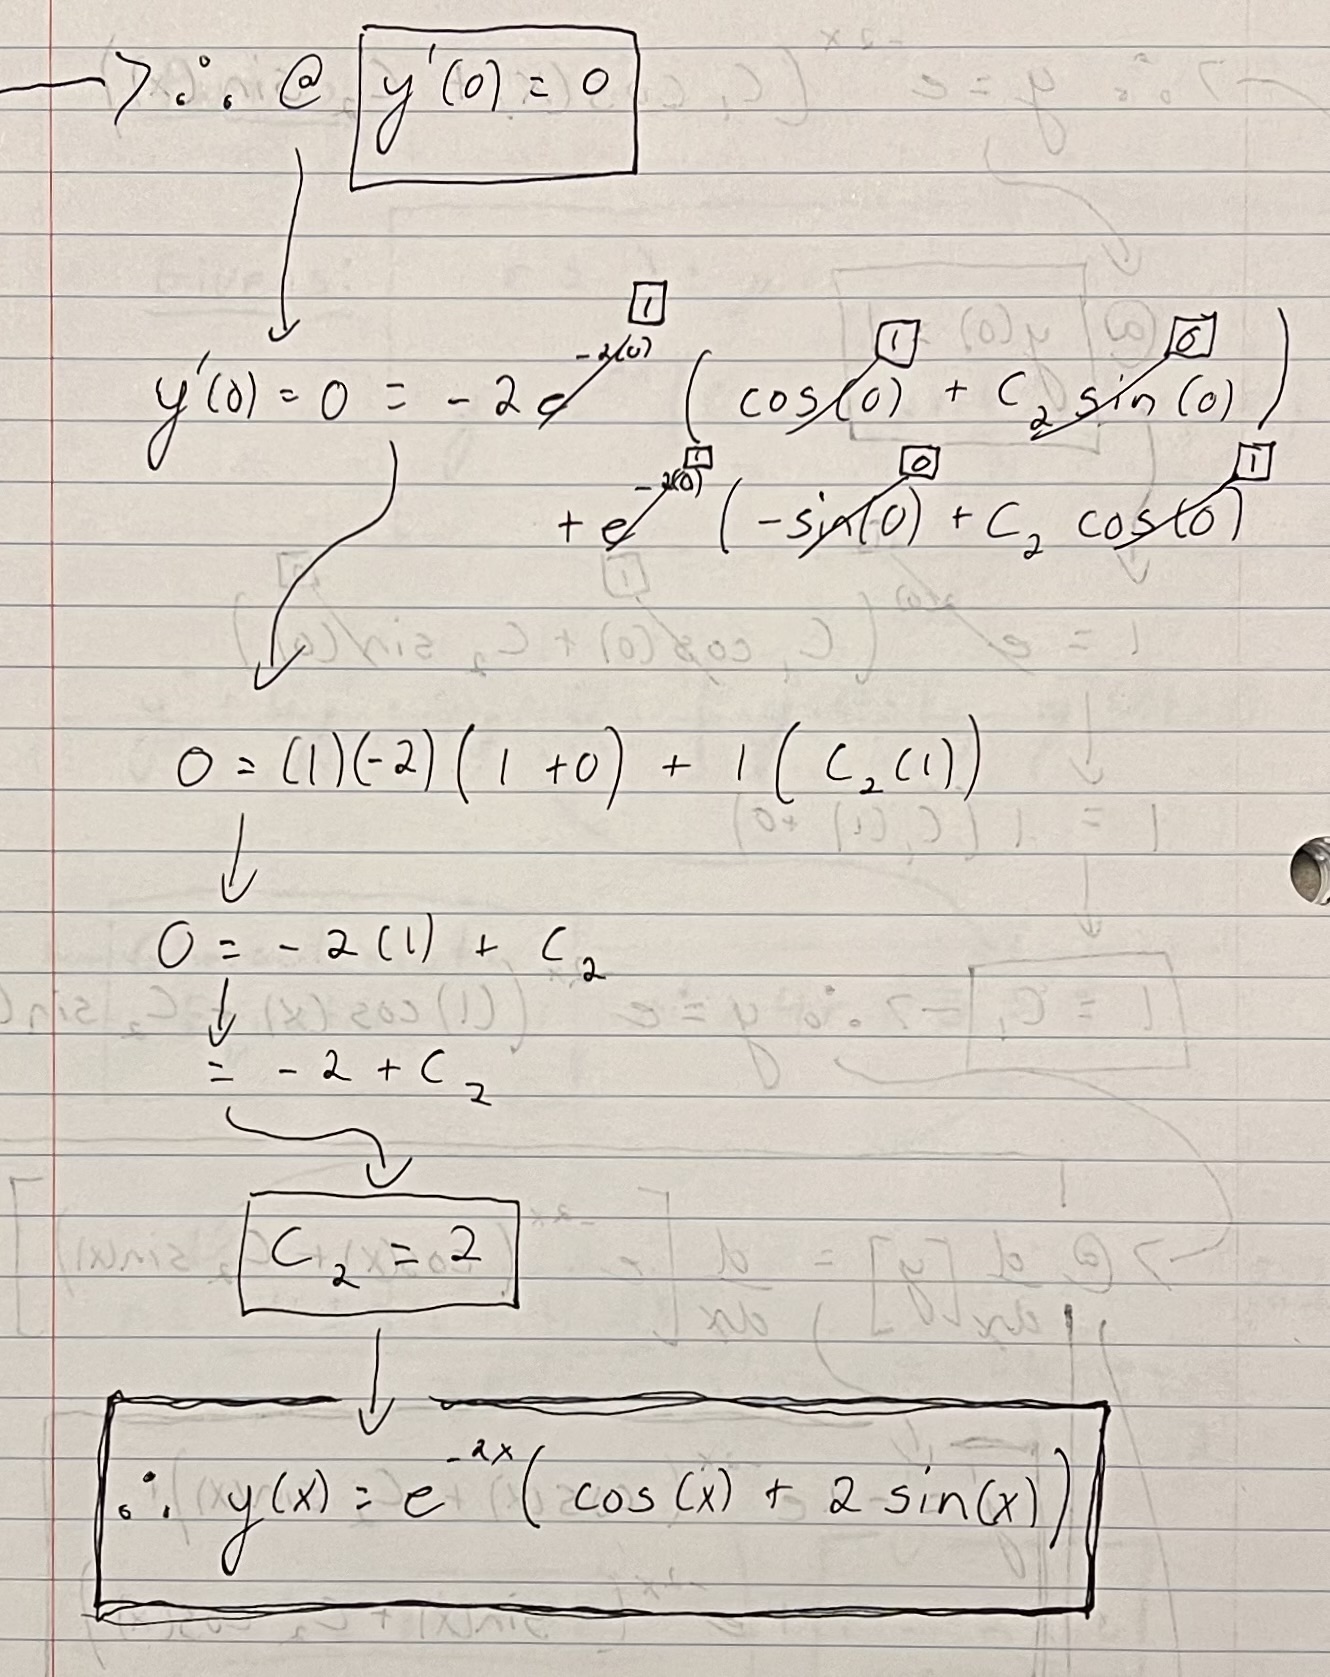 ∴ @ y'(0) = 0
y'(0) = 0 = -2e^{-2(0)} [1] ( cos(0) [1] + C₂ sin(0) [0] )
+ e^{-2(0)} [1] ( -sin(0) [0] + C₂ cos(0) [1] )
0 = (1)(-2)( 1 + 0 ) + 1( C₂(1) )
0 = -2(1) + C₂
= -2 + C₂
C₂ = 2
∴ y(x) = e^{-2x}( cos(x) + 2 sin(x) )